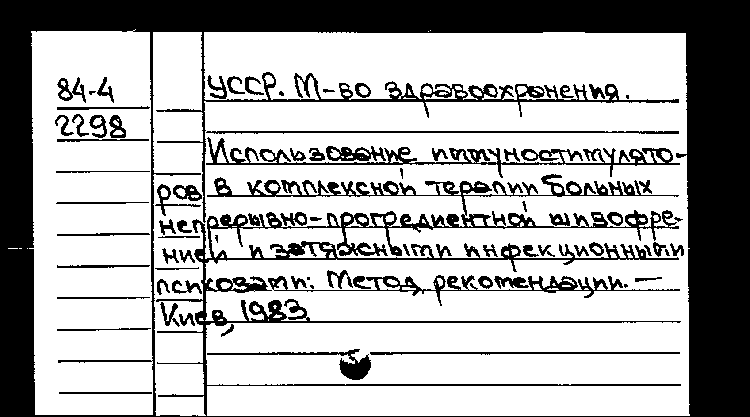 84-4
2298
УССР. М-во здравоохранения.
Использование иммуностимулято-
ров в комплексной терапии больных
непрерывно-прогредиентной шизофре-
нией и затяжными инфекционными
психозами: Метод. рекомендации. —
Киев, 1983.